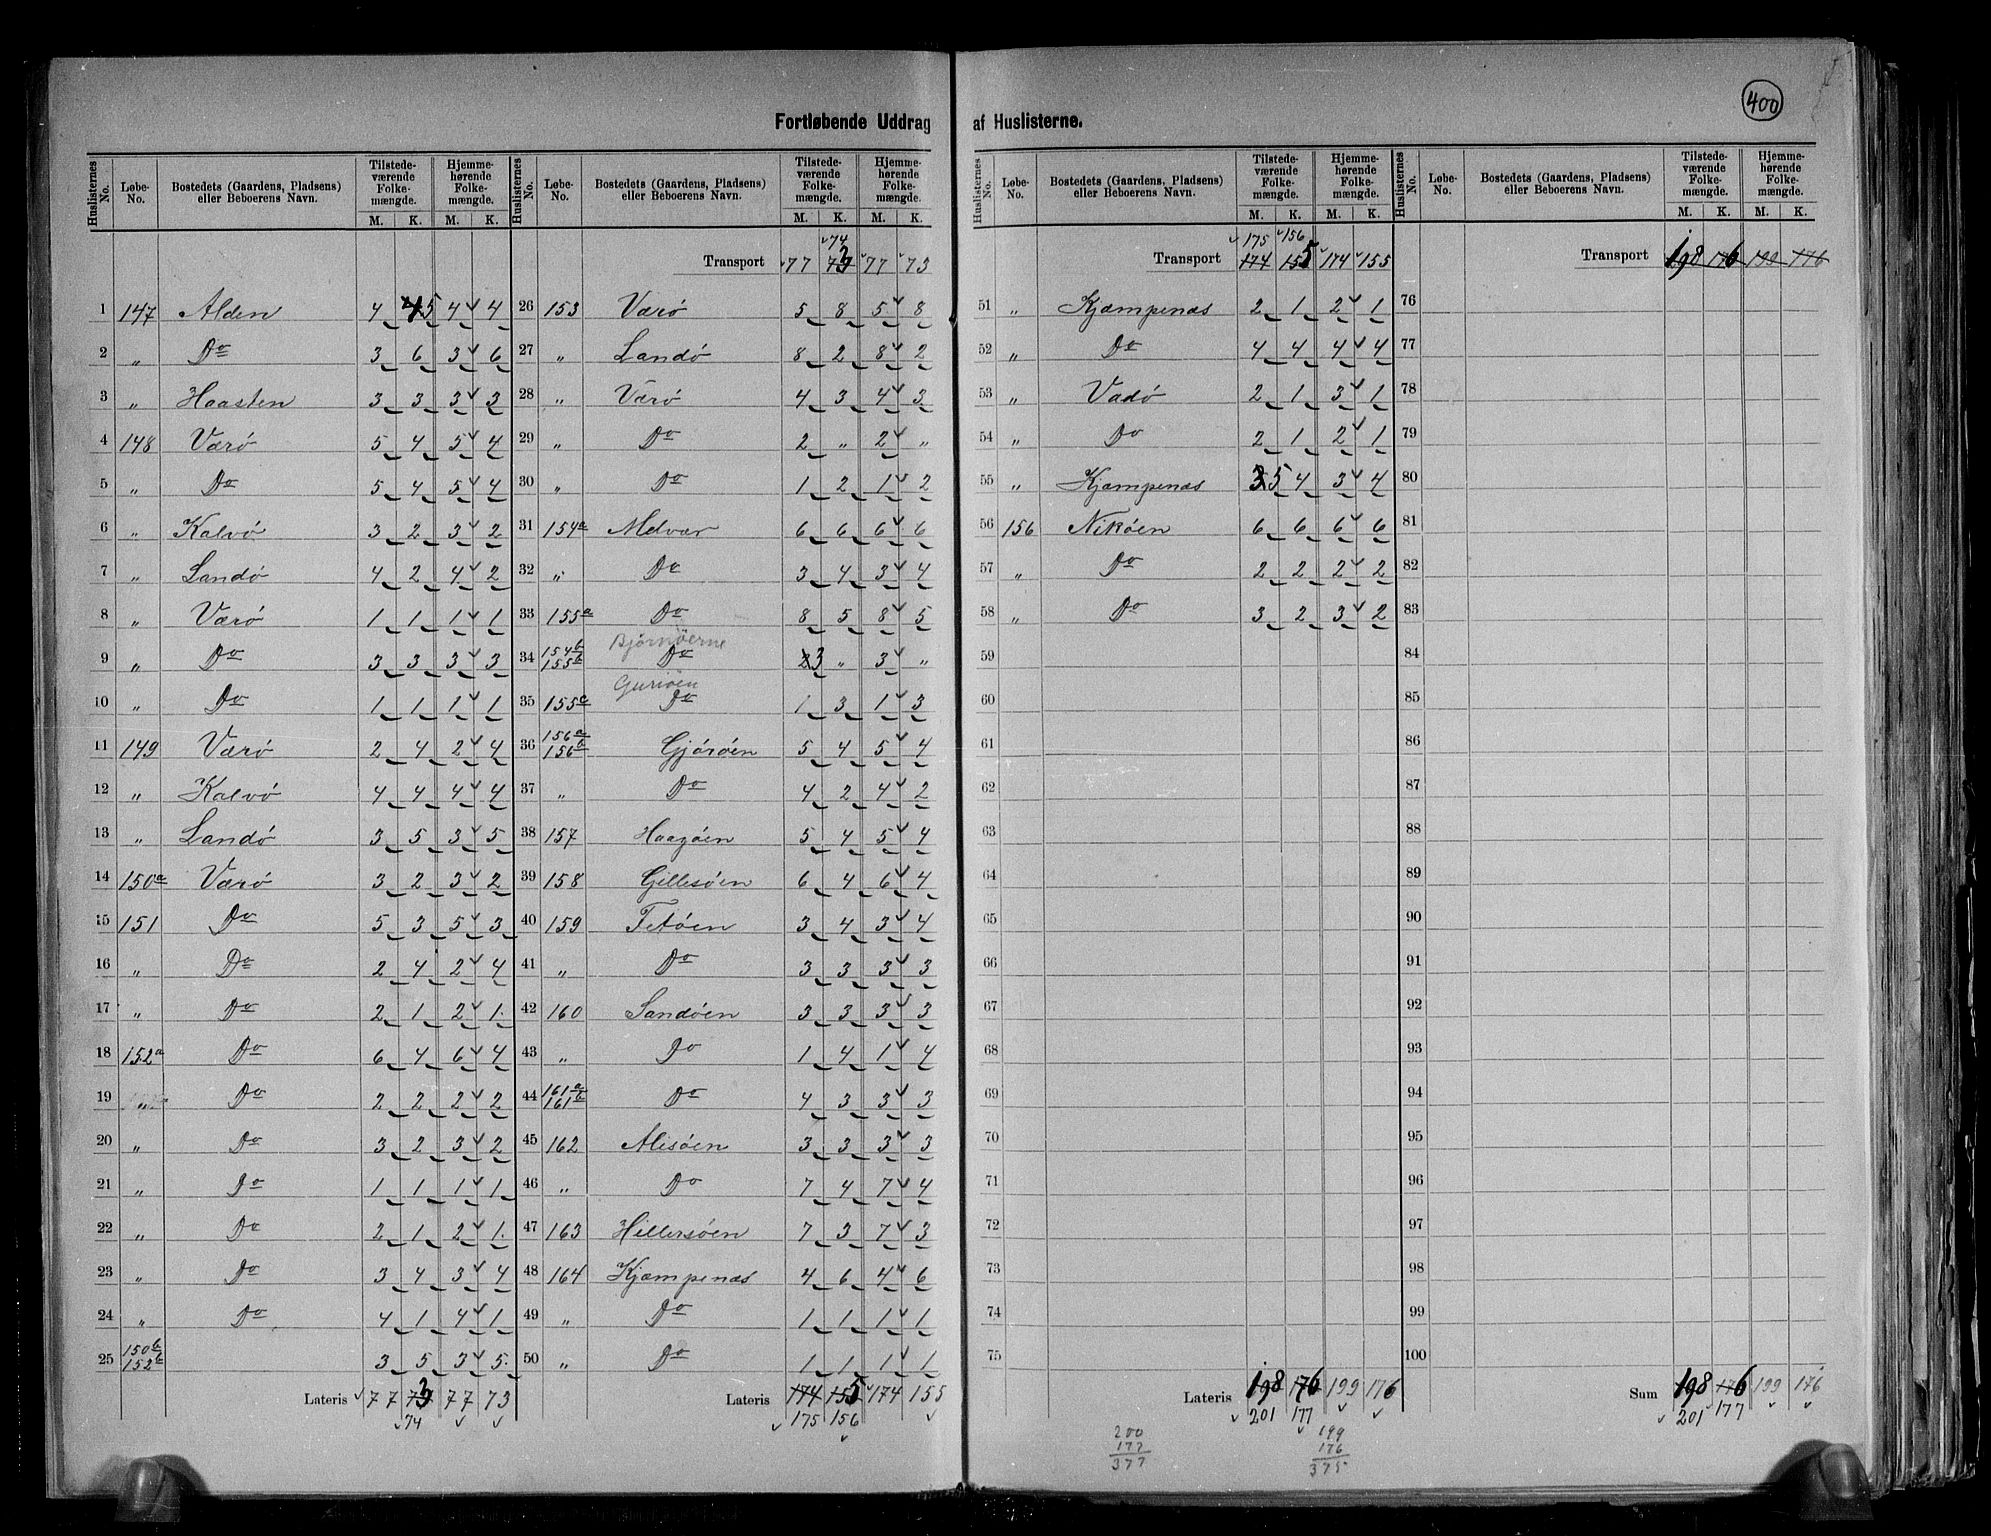 400
Fortløbende Uddrag af Huslisterne.
Huslisternes No. | Løbe-No. | Bostedets (Gaardens, Pladsens) eller Beboerens Navn. | Tilstedeværende Folkemængde. M. K. | Hjemmehørende Folkemængde. M. K.
1 147 Alden 4 5 4 4
2 „ Do 3 6 3 6
3 „ Haasten 3 3 3 3
4 148 Værø 5 4 5 4
5 „ Do 5 4 5 4
6 „ Kalvø 3 2 3 2
7 „ Landø 4 2 4 2
8 „ Værø 1 1 1 1
9 „ Do 3 3 3 3
10 „ Do 1 1 1 1
11 149 Værø 2 4 2 4
12 „ Kalvø 4 4 4 4
13 „ Landø 3 5 3 5
14 150a Værø 3 2 3 2
15 151 Do 5 3 5 3
16 „ Do 2 4 2 4
17 „ Do 2 1 2 1
18 152a Do 6 4 6 4
19 „ Do 2 2 2 2
20 „ Do 3 2 3 2
21 „ Do 1 1 1 1
22 „ Do 2 1 2 1
23 „ Do 3 4 3 4
24 „ Do 4 1 4 1
25 150b 152b 3 5 3 5
Lateris 77 73 77 73
74
Huslisternes No. | Løbe-No. | Bostedets (Gaardens, Pladsens) eller Beboerens Navn. | Tilstedeværende Folkemængde. M. K. | Hjemmehørende Folkemængde. M. K.
74
Transport 77 73 77 73
26 153 Værø 5 8 5 8
27 „ Landø 8 2 8 2
28 „ Værø 4 3 4 3
29 „ Do 2 „ 2 „
30 „ Do 1 2 1 2
31 154a Melvær 6 6 6 6
32 „ Do 3 4 3 4
33 155a Do 8 5 8 5
Bjørnøerne
34 154b 155b Do 3 „ 3 „
Gurioen
35 155c Do 1 3 1 3
36 156a 156b Gjørøen 5 4 5 4
37 „ Do 4 2 4 2
38 157 Haagøen 5 4 5 4
39 158 Gillesøen 6 4 6 4
40 159 Tetøen 3 4 3 4
41 „ Do 3 3 3 3
42 160 Sandøen 3 3 3 3
43 „ Do 1 4 1 4
44 161a 161b Do 4 3 3 3
45 162 Alisøen 3 3 3 3
46 „ Do 7 4 7 4
47 163 Hillersøen 7 3 7 3
48 164 Kjæmpenæs 4 6 4 6
49 „ Do 1 1 1 1
50 „ Do 1 1 1 1
Lateris 174 155 174 155
175 156
Huslisternes No. | Løbe-No. | Bostedets (Gaardens, Pladsens) eller Beboerens Navn. | Tilstedeværende Folkemængde. M. K. | Hjemmehørende Folkemængde. M. K.
175 156
Transport 174 155 174 155
51 „ Kjæmpenæs 2 1 2 1
52 „ Do 4 4 4 4
53 „ Vadø 2 1 3 1
54 „ Do 2 1 2 1
55 „ Kjæmpenæs 5 4 3 4
56 156 Nikøen 6 6 6 6
57 „ Do 2 2 2 2
58 „ Do 3 2 3 2
59
60
61
62
63
64
65
66
67
68
69
70
71
72
73
74
75
Lateris 198 176 199 176
201 177
200
177
377
199
176
375
Huslisternes No. | Løbe-No. | Bostedets (Gaardens, Pladsens) eller Beboerens Navn. | Tilstedeværende Folkemængde. M. K. | Hjemmehørende Folkemængde. M. K.
Transport 198 176 199 176
76
77
78
79
80
81
82
83
84
85
86
87
88
89
90
91
92
93
94
95
96
97
98
99
100
Sum 198 176 199 176
201 177